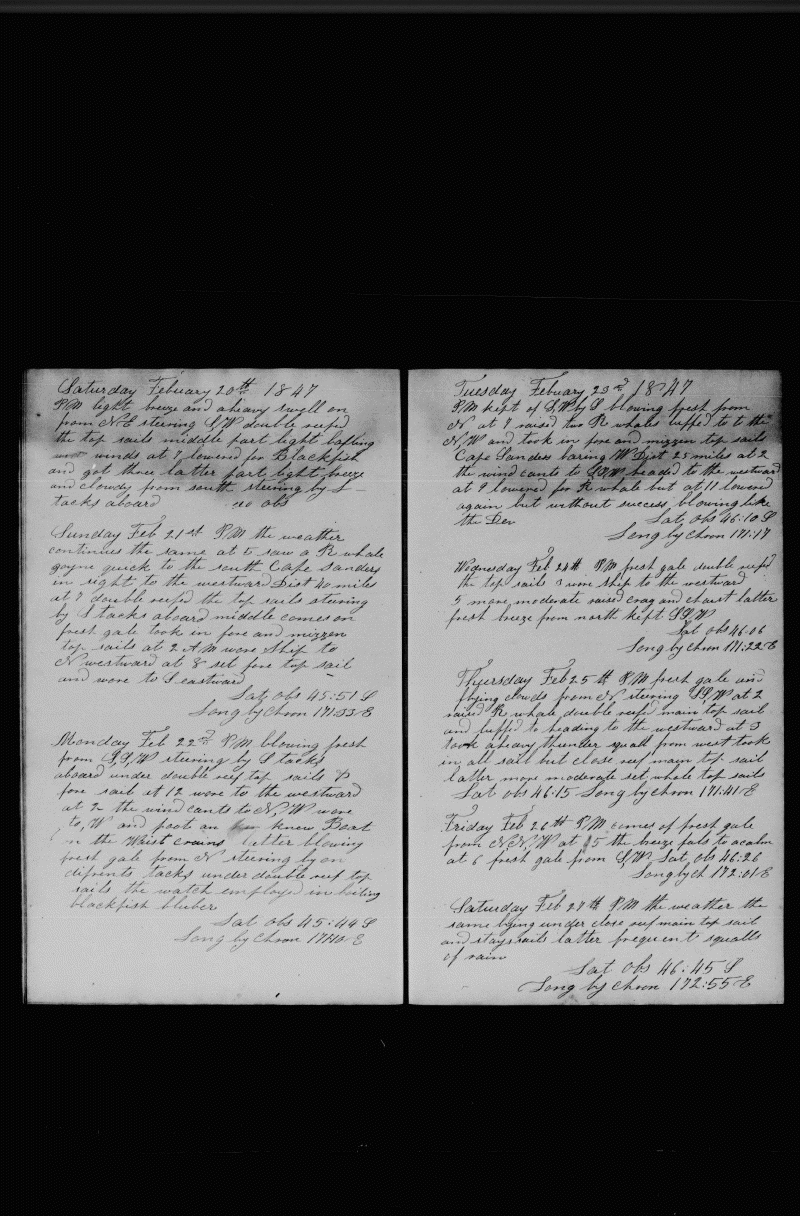 Saturday Febuary 20th 1847
P M light breeze and aheavy swell on
from N E steering S, W double reef'd
the top sails middle part light bafling
winds at 7 lowered for Blackfish
and got three latter part light breeze
and clowdy from south steering by S
tacks aboard no obs
Sunday Feb 21st P M the weather
continues the same at 5 saw a R whale
goyne quick to the south Cape Sanders
in sight to the westward Dist 40 miles
at 7 double reef'd the top sails steering
by S tacks aboard middle comes on
fresh gale took in fore and mizzen
top sails at 2 A M wore ship to
N westward at 8 set fore top sail
and wore to S eastward
Lat, obs 45:51 S
Long by Chron 171:33 E
Monday Feb 22nd P M blowing fresh
from S, S, W steering by S tacks
aboard under double reef top sails &
fore sail at 12 wore to the westward
at 2 the wind cants to N, W wore
to, W and poot an knew Boat
in the Waist latter blowing
fresh gale from N steering by on
difrints tacks under double reef top
sails the watch employed in boiling
blackfish bluber
Lat obs 45:44 S
Long by Chron E
Tuesday Febuary 23rd 1847
P M kept of S, W by S blowing fresh from
N at 7 raised two R whales luffed to t the
N, W and took in fore and mizzen top sails
Cape Sanders baring W Dist 25 miles at 2
the wind cants to S, W headed to the westward
at 9 lowered for R whale but at 11 lowered
again but without success, blowing like
the Dev
Lat, obs 46:10 S
Long by Chron 171:17
Wednesday Feb 24th P M fresh gale double reef'd
the top sails 3 wore ship to the westward
5 more moderate raised crag and chaist latter
fresh breeze from north kept S, S, W
Lat obs 46:06
Long by Chron 171:22 E
Thyersday Feb 25th P M fresh gale and
flying clowds from N stering S S, W at 2
raised R whale double reef'd main top sail
and luffed to heading to the westward at 3
took aheavy thunder squall from west took
in all sail but close reef main top sail
latter more moderate set whole top sails
Lat obs 46:15 Long by chron 171:41 E
Friday Feb 26th P M comes of fresh gale
from N N, W at 5 the breeze fals to acalm
at 6 fresh gale from S, W, Lat, obs 46:26
Long by ch 172:01 E
Saturday Feb 27th P M the weather the
same lying under close reef main top sail
and staysails latter frequent squalls
of rain
Lat obs 46:45 S
Long by chron 172:55 E